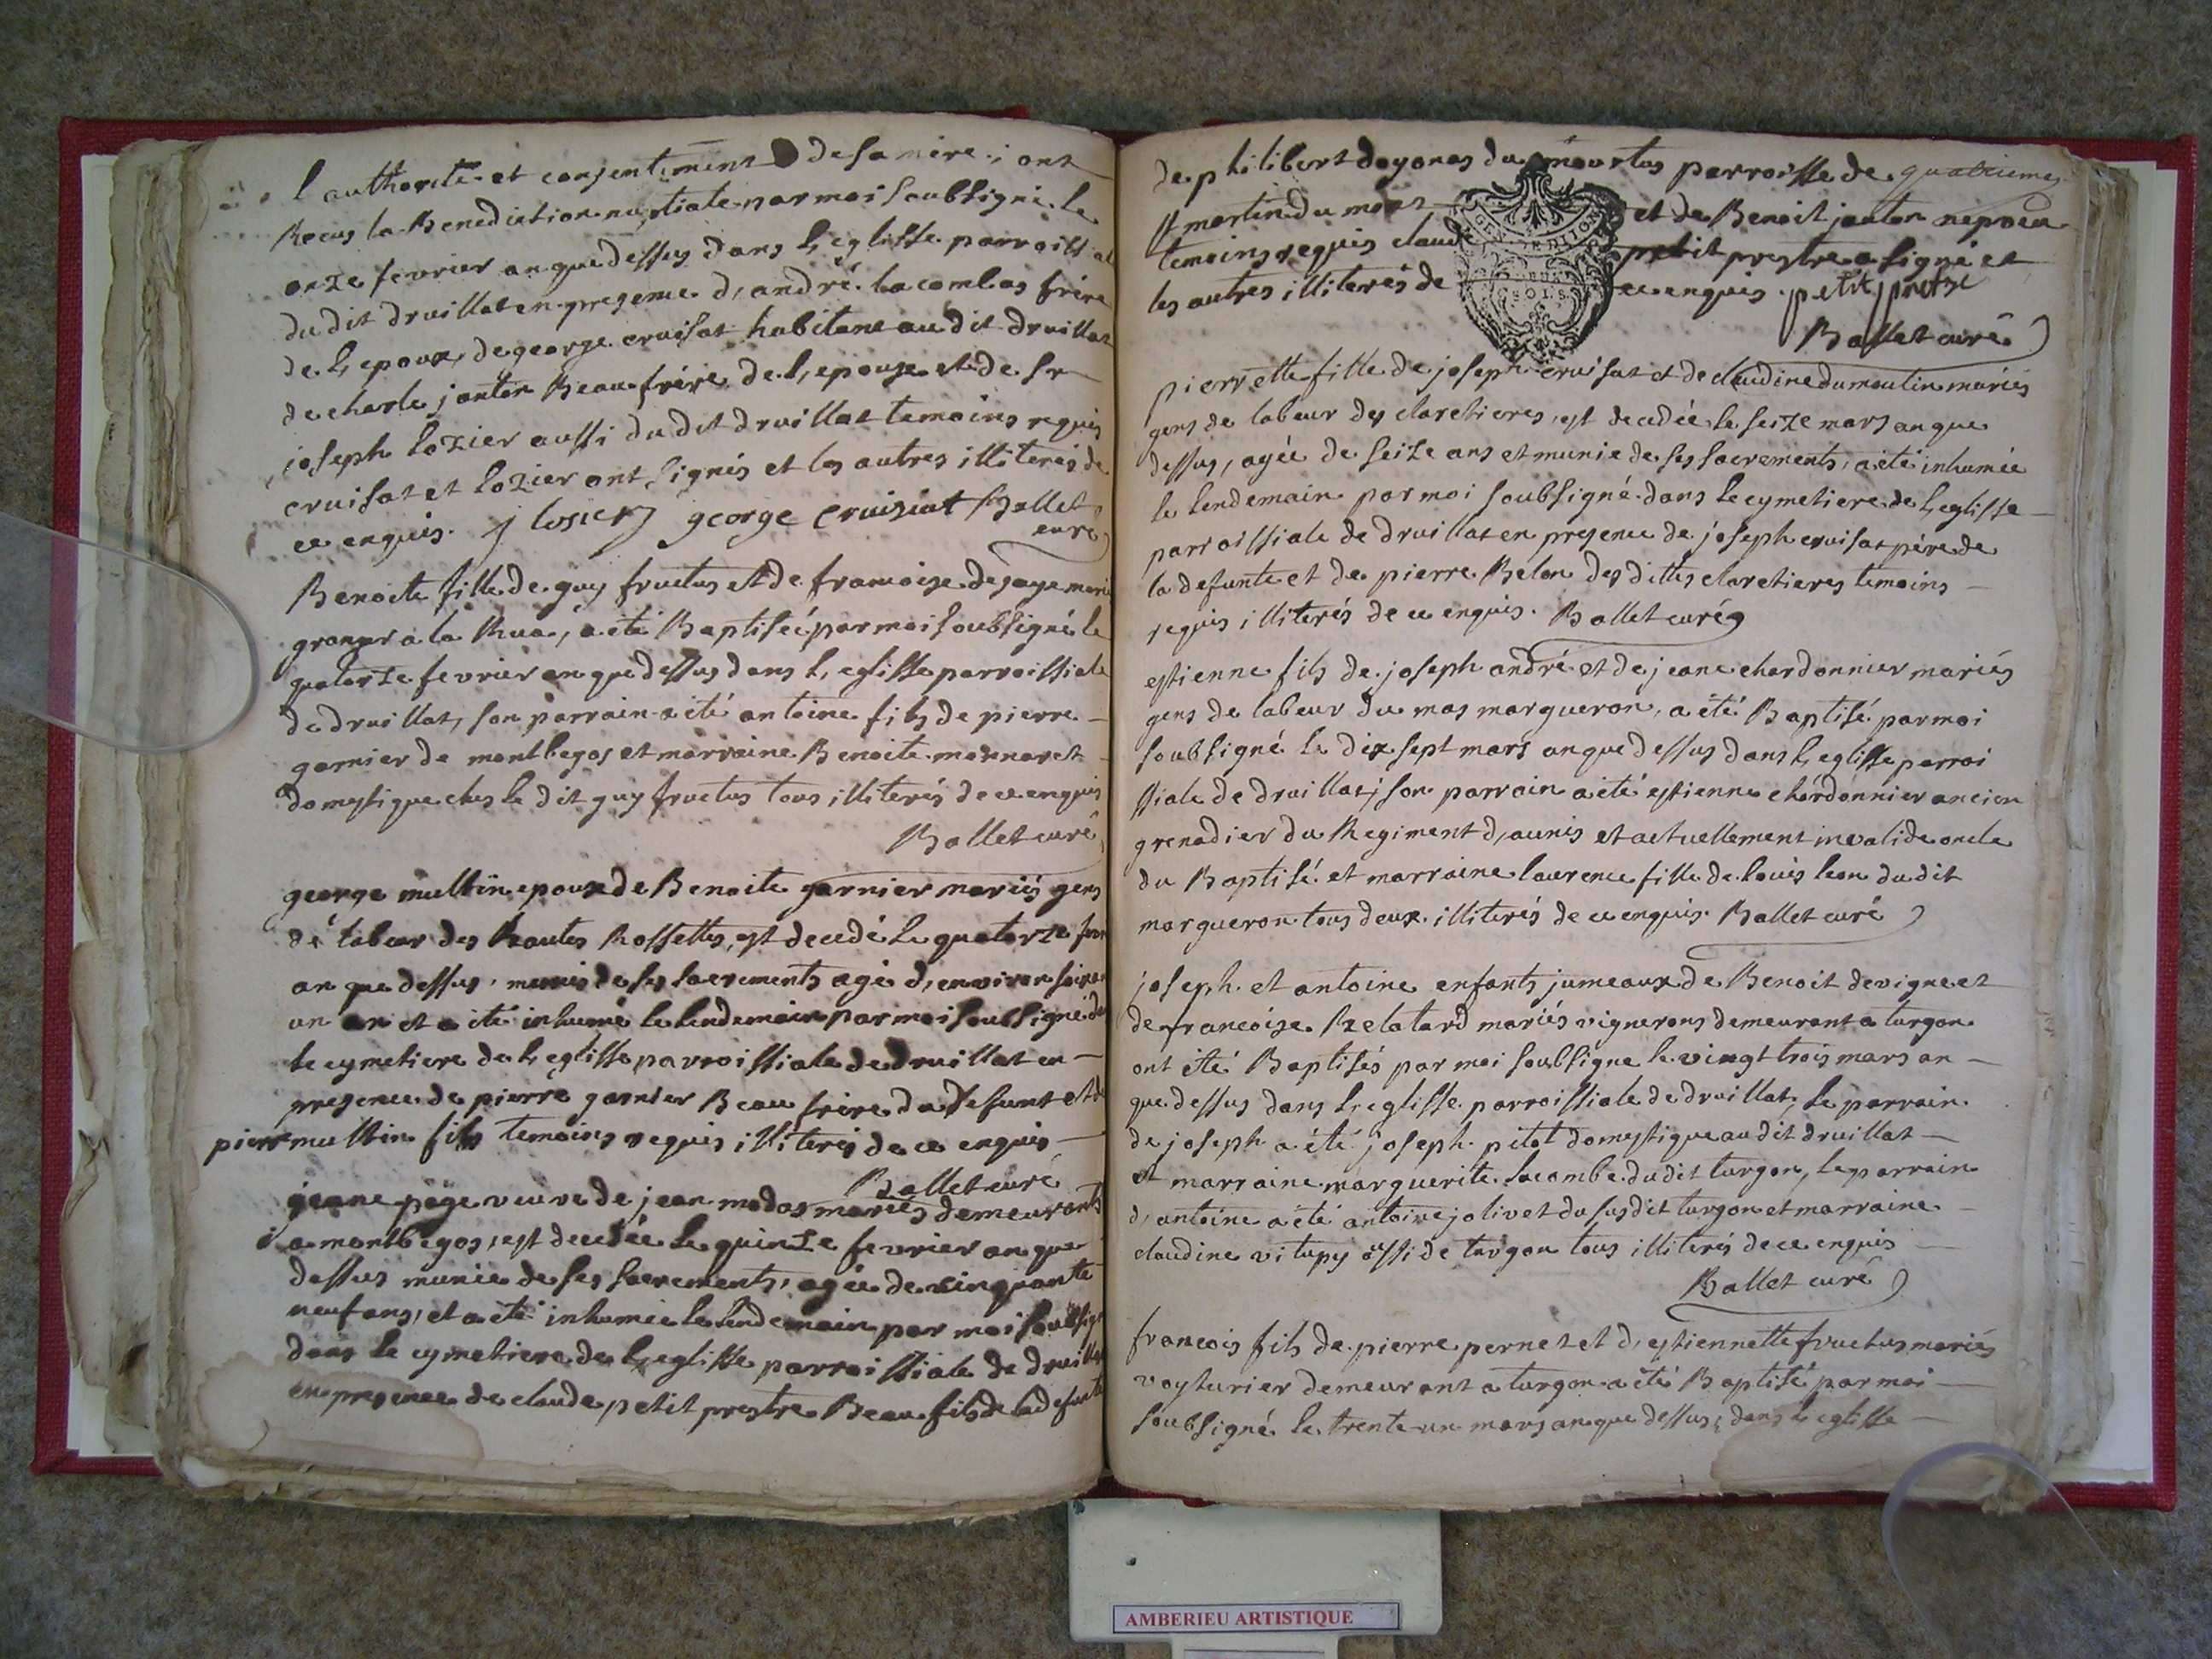 l'authorité et consentiment de sa mère; ont
Recus la Benediction nuptiale par moi soubsigné le
onze fevrier an que dessus dans l'eglisse parroissial
dudit druillat en presence d'andré lacombas frère
de l'epoux, de george cruisat habitant audit druillat
de charle janton Beau frère de l'epouse et de sr
joseph lozier aussi dudit druillat temoins requis
cruisat et lozier ont signés et les autres illiterés de
ce enquis. j losier george cruiziat Ballet
curé
Benoite fille de guy fructus et de francoise desaye marié
granger a la Rua, a eté Baptisée par moi soubsigné le
quatorze fevrier an que dessus dans l'eglisse parroissiale
de druillat, son parrain a été antoine fils de pierre
garnier de montbegos et marraine Benoite monnaret
domestique ches le dit guy fructus tous illiterés de ce enquis
Ballet curé
george multin epoux de Benoite garnier mariés gens
de labeur des hautes Rossettes, est decedé le quatorze fevr
an que dessus, munis de ses sacrements agé d'environ soixan
un an et a été inhumé le lendemain par moi soubsigné da
le cymetiere de l'eglisse parroissiale de druillat en
presence de pierre garnier Beau frère du defunt et de
pierre multin fils temoins requis illiterés de ce enquis
Ballet curé
jeane page veuve de jean modas mariés demeurants
a montbegos, est decedée le quinze fevrier an que
dessus munie de ses sacrements, agée de cinquante
neuf ans, et a été inhumée le lendemain par moi soubsig
dans le cymetiere de l'eglisse parroissiale de druillat
en presence de claude petit prestre Beau fils de la defunte
de philibert dayonas du parroisse de quatrieme
st martin du mont et de Benoit janton nepveu
temoins requis claude petit prestre a signé et
les autres illiterés de ce enquis. petit pretre
GEN DE DIJON
SOLS
Ballet curé
pierrette fille de joseph cruisat et de claudine dumoulin mariés
gens de labeur des claretieres, est decedée le seize mars an que
dessus, agée de seize ans et munie de ses sacrements, a eté inhumée
le lendemain par moi soubsigné dans le cymetiere de l'eglisse
parroissiale de druillat en presence de joseph cruisat père de
la defunte et de pierre Belon des dittes claretieres temoins
requis illiterés de ce enquis. Ballet curé
estienne fils de joseph andré et de jeane chardonnier mariés
gens de labeur du mas margueron, a été Baptisé par moi
soubsigné le dix sept mars an que dessus dans l'eglisse parroi
ssiale de druillat, son parrain a été estienne chardonnier ancien
grenadier du Regiment d'aunis et actuellement invalide oncle
du Baptisé et marraine laurence fille de louis leon dudit
margueron tous deux illiterés de ce enquis. Ballet curé
joseph et antoine enfants jumeaux de Benoit devigne et
de francoise Relatard mariés vignerons demeurant a turgon
ont été Baptisés par moi soubsigné le vingt trois mars an
que dessus dans l'eglisse parroissiale de druillat, le parrain
de joseph a été joseph pitot domestique audit druillat
et marraine marguerite lacombe dudit turgon, le parrain
d'antoine a été antoine jolivet du susdit turgon et marraine
claudine vitupy ossi de turgon tous illiterés de ce enquis
Ballet curé
francois fils de pierre pernet et d'estiennette fructus mariés
voyturier demeurant a turgon a été Baptisé par moi
soubsigné le trente un mars an que dessus, dans l'eglisse
AMBERIEU ARTISTIQUE